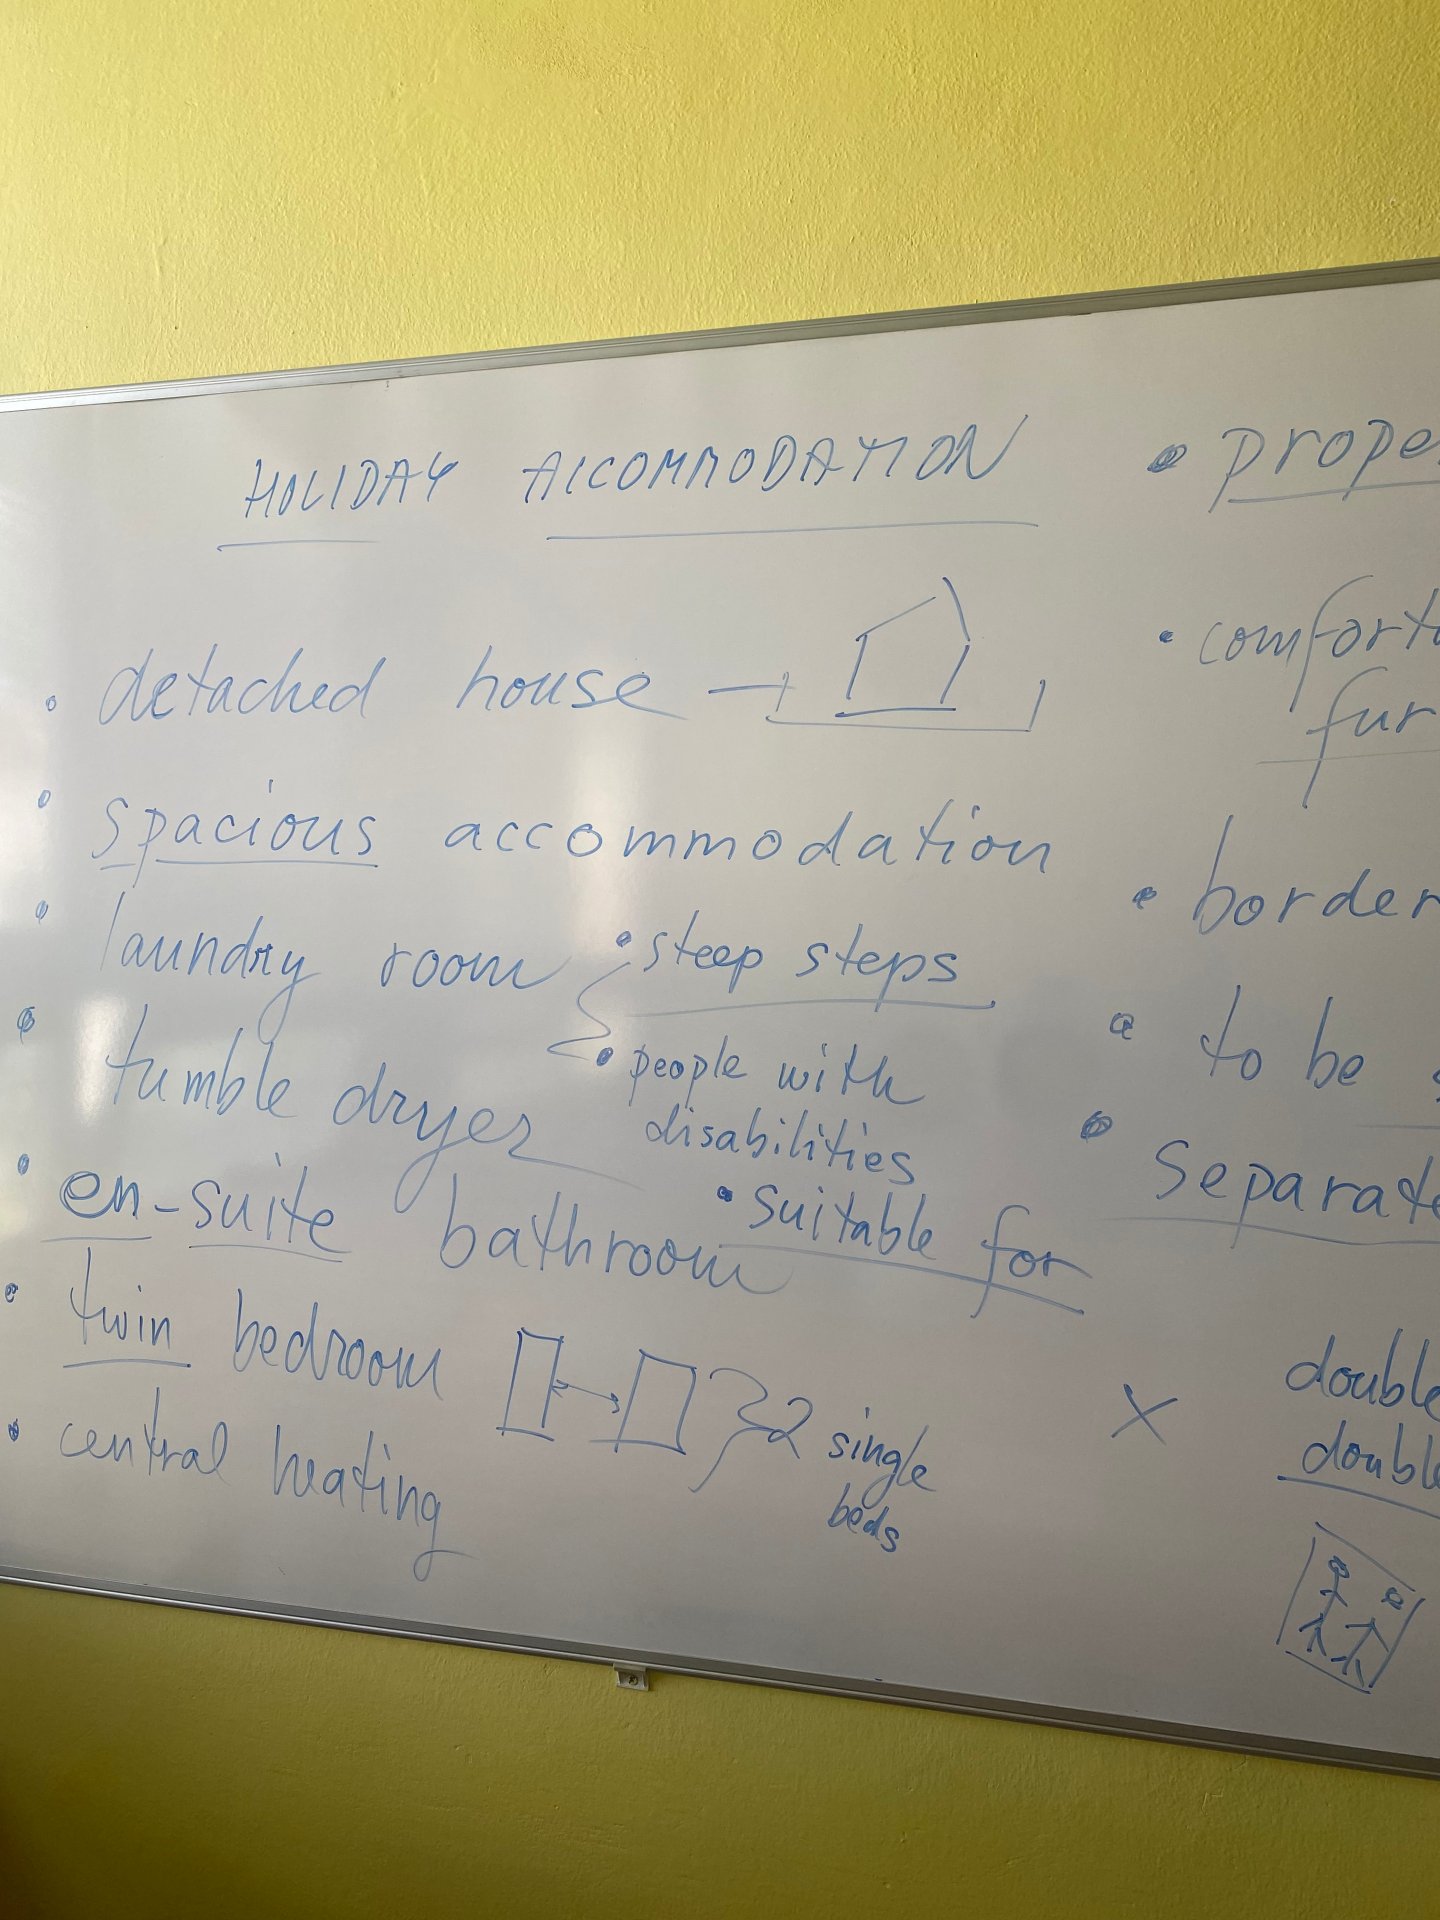 HOLIDAY ACCOMMODATION
• detached house
• spacious accommodation
• laundry room
• steep steps
• tumble dryer
• people with
disabilities
• en-suite bathroom
• suitable for
• twin bedroom
2 single
beds
• central heating
• prope
• comforta
fur
• border
• to be
• separate
X
double
double